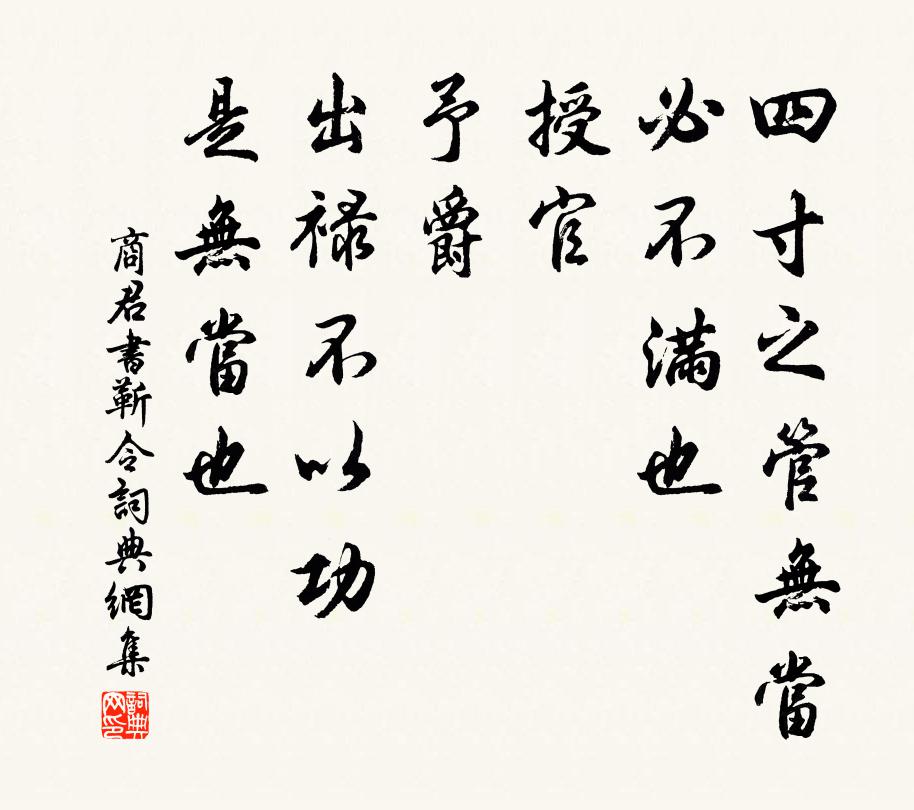 四寸之管無當
必不滿也
授官
予爵
出禄不以功
是無當也
商君書靳令詞典網集
詞典網印